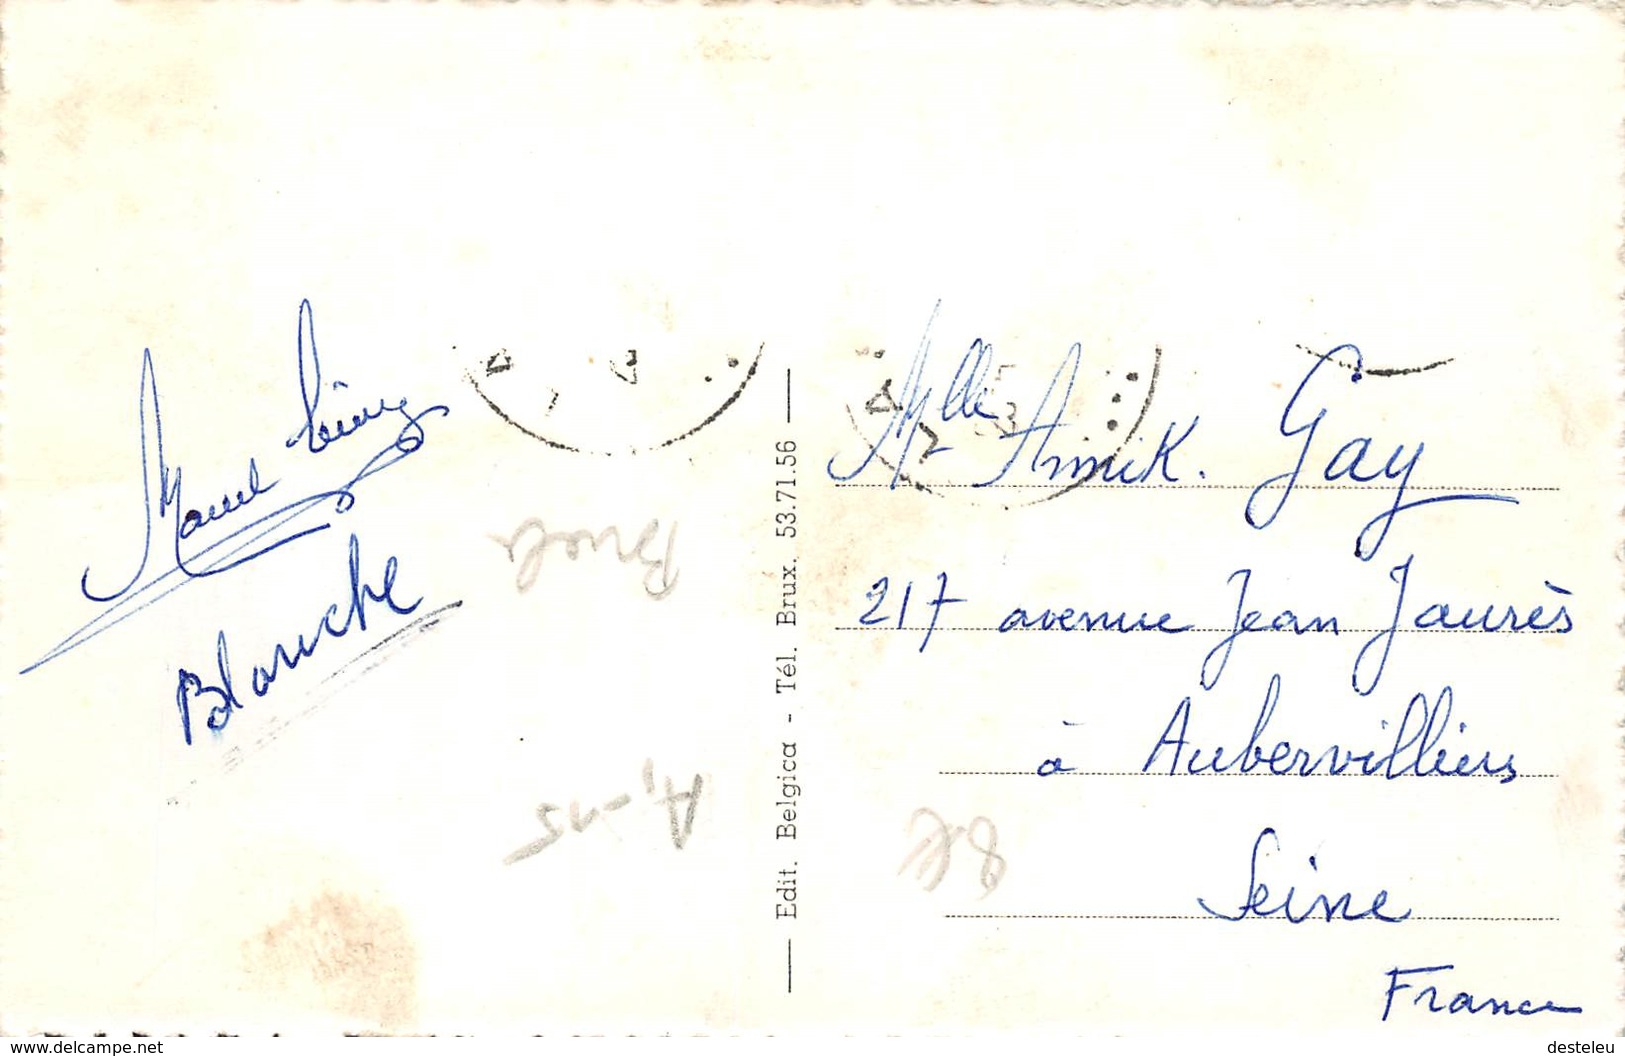 Blanche
Edit. Belgica - Tél. Brux. 53.71.56
Mlle Annik. Gay
217 avenue Jean Jaurès
à Aubervilliers
Seine
France
delcampe.net
desteleu